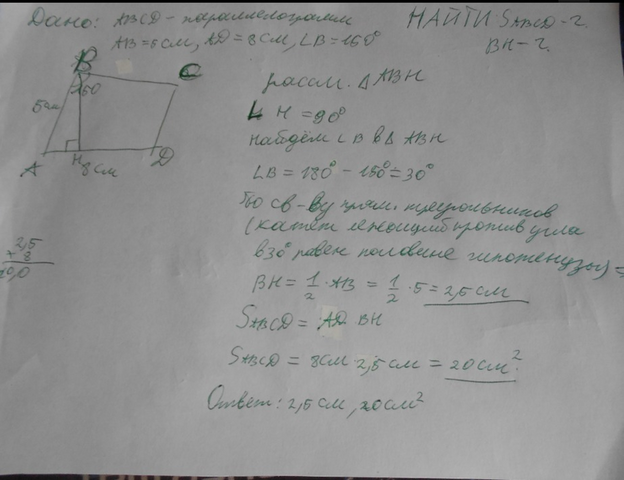 Дано: ABCD - параллелограмм
AB=5см, AD=8см, LB=150°
НАЙТИ: SABCD-?
BH-?
B
C
150
5см
A
H
8см
D
рассм. △ ABH
L H = 90°
найдём LB в △ ABH
LB = 180° - 150° = 30°
По св-ву прям. треугольников
(катет лежащий против угла
в 30° равен половине гипотенузы) =
BH = 1/2 · AB = 1/2 · 5 = 2,5 см
SABCD = AD BH
SABCD = 8см 2,5 см = 20 см²
Ответ: 2,5 см, 20 см²
2,5
× 8
20,0